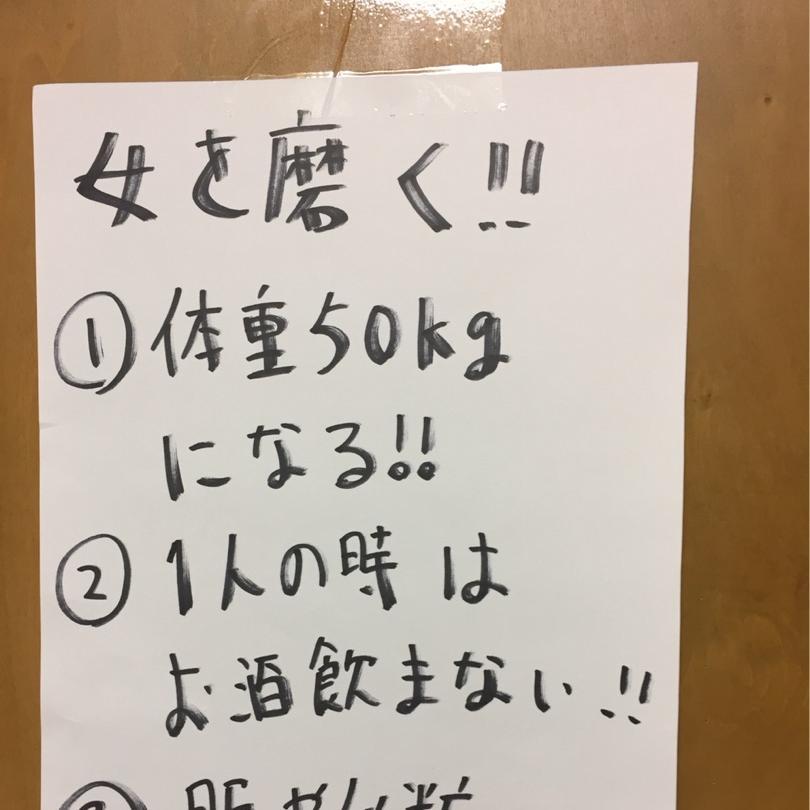 女を磨く!!
①体重50kg
になる!!
②1人の時は
お酒飲まない!!
③